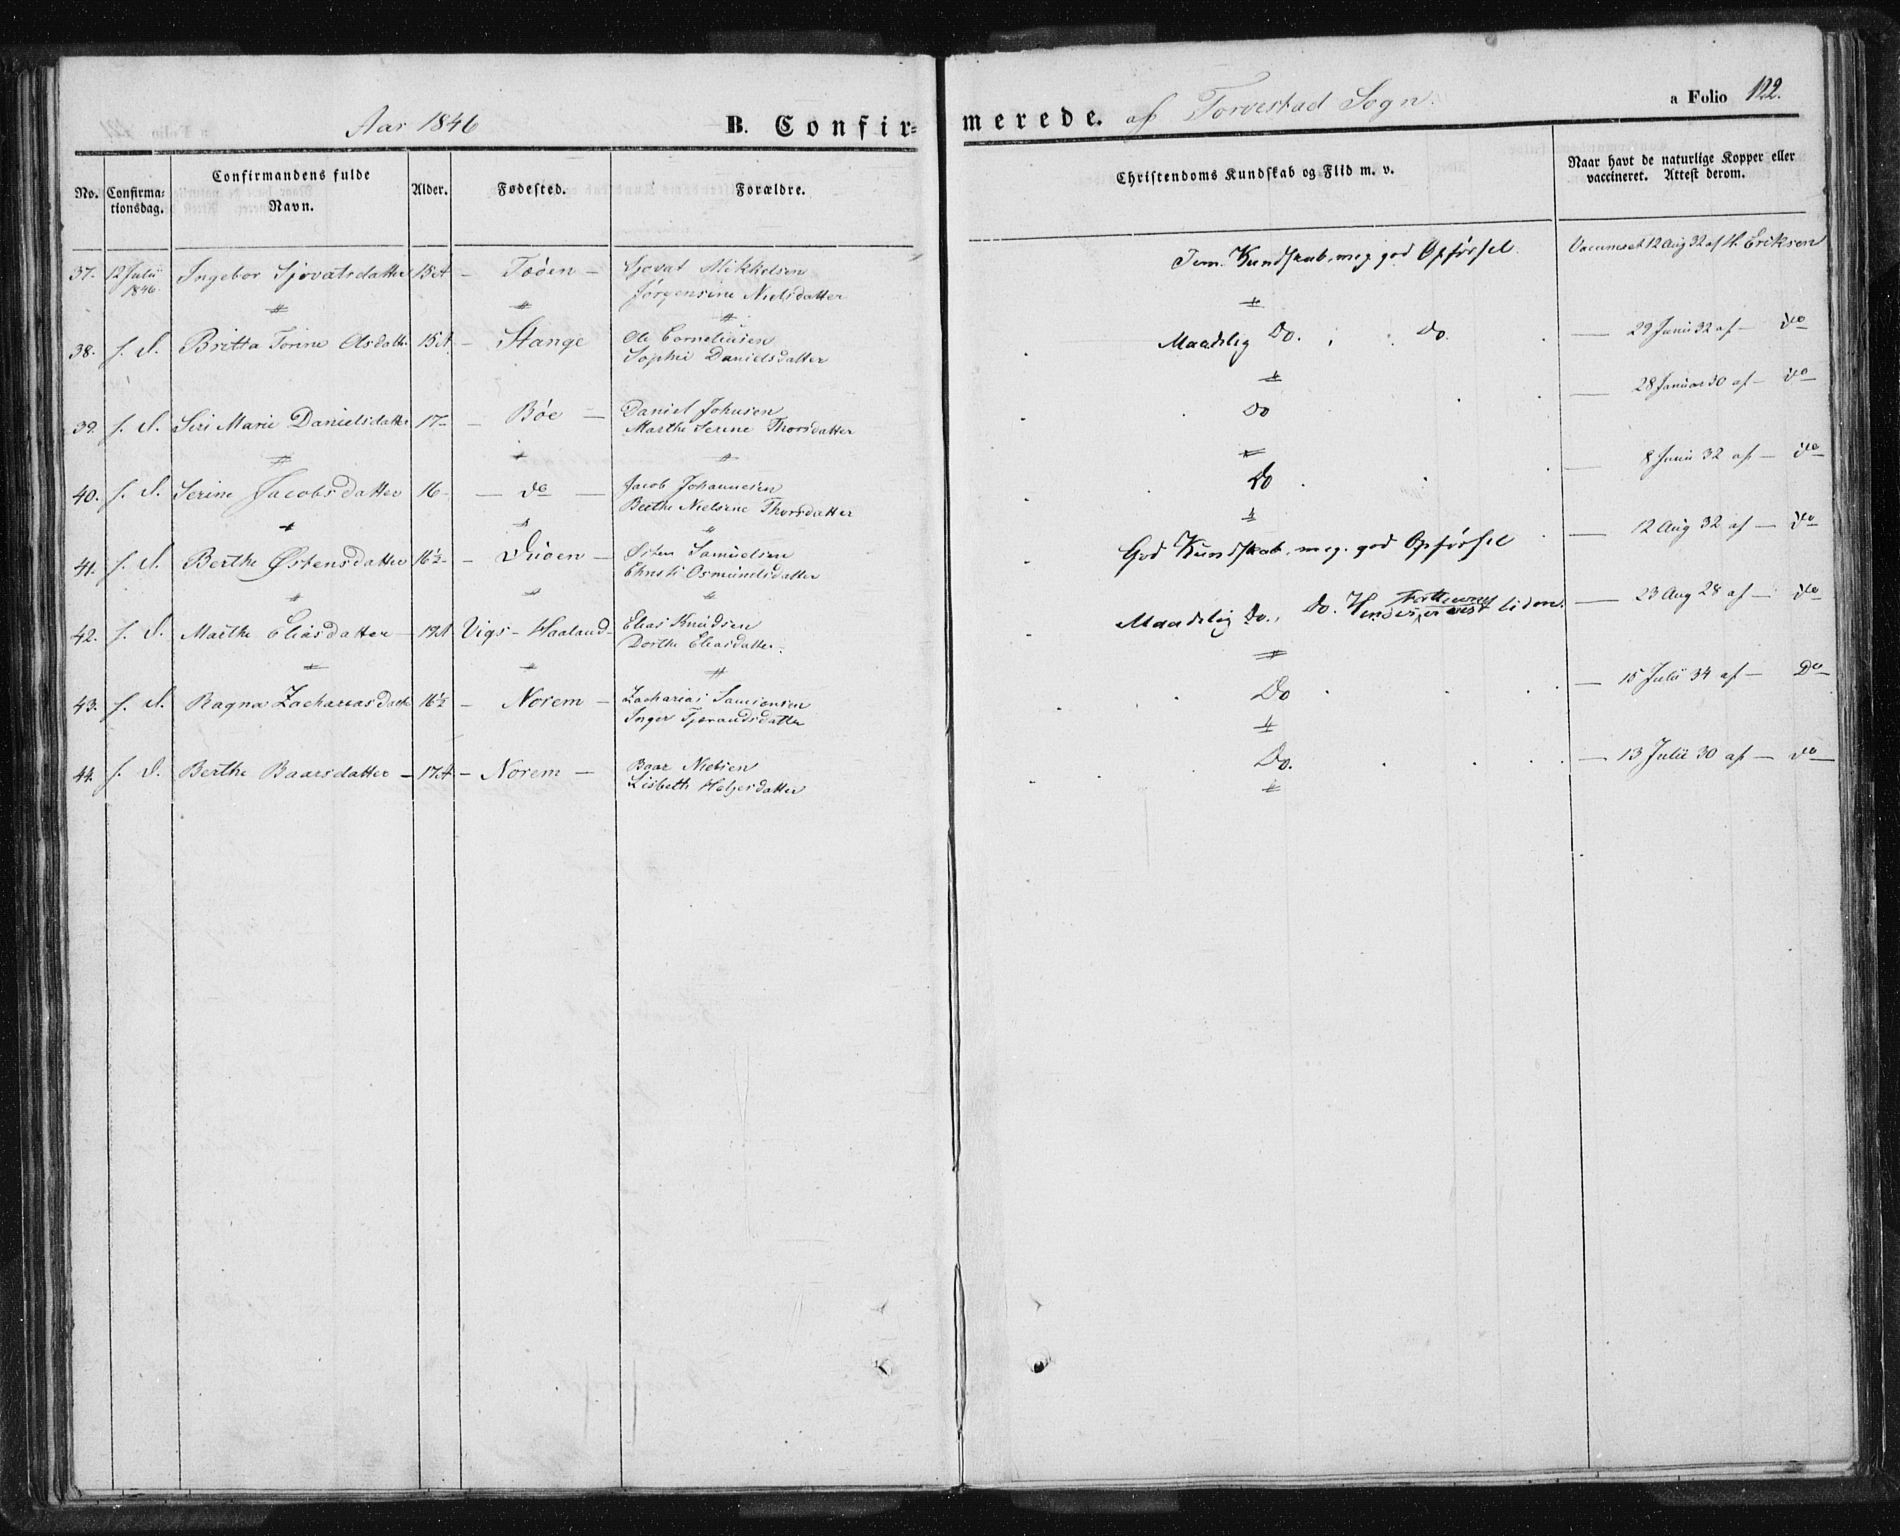 Aar 1846 B. Confirmerede. af Torvestad Sogn. a Folio 122.
No. Confirmationsdag. Confirmandens fulde Navn. Alder. Fødested. Forældre. Christendoms Kundskab og Flid m. v. Naar havt de naturlige Kopper eller vaccineret. Attest derom.
37. 12 Julii 1846. Ingebor Sjovatsdatter 15 A – – Sjovat Mikkelsen Tem. Kundskab, meg god Opførsel. Vaccineret 12 Aug 32 af H. Eriksen
Jørgensine Nielsdatter
38. f. d. Britta Torine Olsdatter 15 A – Stange Ole Corneliusen Maadelig Do. Do. — 29 Junii 32 af – do
Sophie Danielsdatter
39. f. d. Siri Marie Danielsdatter 17 – Bøe – Daniel Johnsen Do — 28 Januar 30 af – do
Marthe Serine Thorsdatter
40. f. d. Serine Jacobsdatter 16 – do – Jacob Johannesen Do — 8 Junii 32 af – do
Berthe Nielsine Thorsdatter
41. f. d. Berthe Østensdatter 16½ – – Østen Samuelsen God Kundskab, meg. god Opførsel — 12 Aug 32 af – do
Christi Osmundsdatter
42. f. d. Marthe Eliasdatter – 19 A Vigs-Haaland – Elias Knudsen Maadelig Do., Do. liden. — 23 Aug 28 af – do
Dorthe Eliasdatter.
43. f. d. Ragna Zachariasdatter 16½ – Norem – Zacharias Samsonsen Do — 15 Julii 34 af – Do
Inger Tjerandsdatter
44. f. d. Berthe Baarsdatter – 17 A – Norem – Baar Nielsen Do. — 13 Julii 30 af – do
Lisbeth Helgesdatter